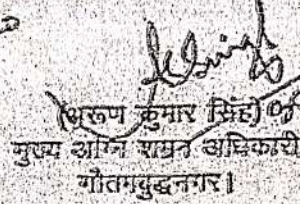 (अरूण कुमार सिंह)
मुख्य अग्नि शमन अधिकारी
गौतमबुद्धनगर।